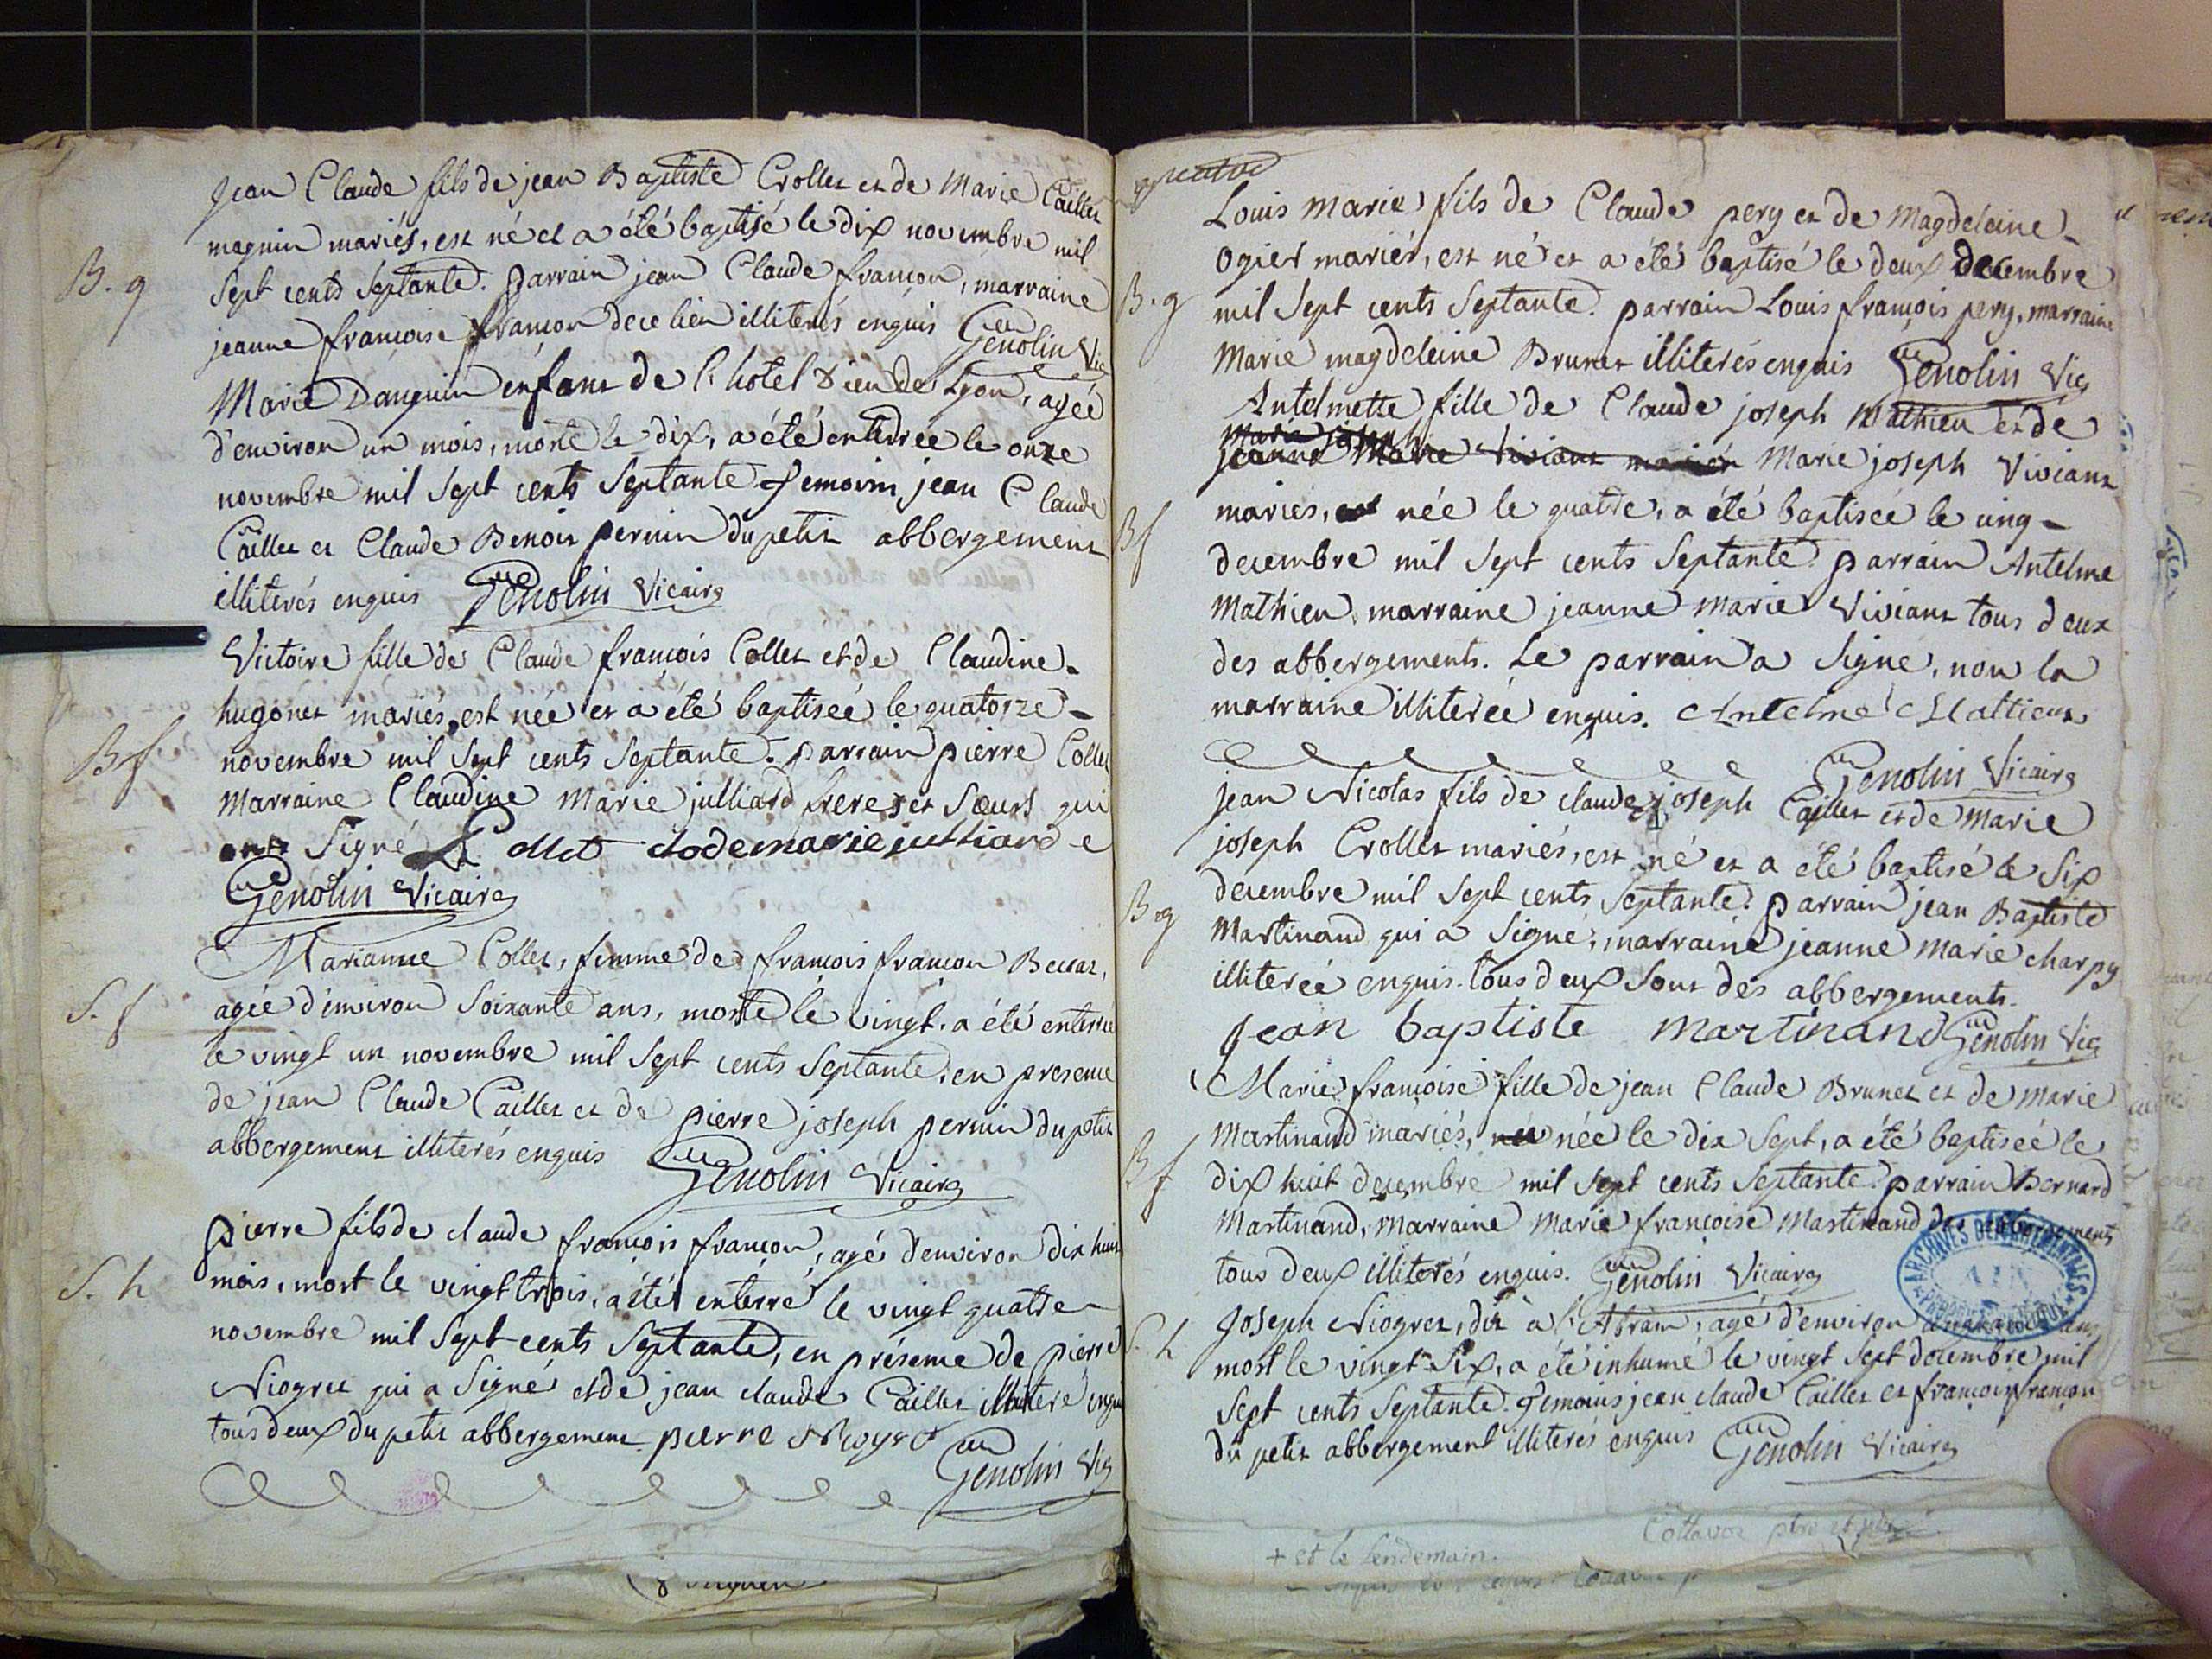 Jean Claude fils de jean Baptiste Crollet et de Marie Caillet
magnin mariés, est né et a été baptisé le dix novembre mil
B. g
Sept cents Septante. Parrain jean Claude françon, marraine
jeanne françoise françon de ce lieu illiterés enquis Genolin Vic
Marie Danguin enfant de l'hotel Dieu de Lyon, agée
d'environ un mois, morte le dix, a été enterrée le onze
novembre mil Sept cents Septante Temoins jean Claude
Caillet et Claude Benoit pernin du petit abbergement
illiterés enquis Genolin Vicaire
Victoire fille de Claude françois Collet et de Claudine
hugonet mariés, est née et a été baptisée le quatorze
Bf
novembre mil Sept cents Septante. parrain pierre Collet
Marraine Claudine Marie julliard freres et Sœurs qui
ont Signé P Collet clode marie julliard e
Genolin Vicaire
Marianne Collet, femme de françois françon
S. f
agée d'environ Soixante ans, morte le vingt, a été enterrée
le vingt un novembre mil Sept cents Septante, en presence
de jean Claude Caillet et de pierre joseph pernin du petit
abbergement illiterés enquis Genolin Vicaire
pierre fils de claude françois françon, agé d'environ dix huit
S. h
mois, mort le vingt trois, a été enterré le vingt quatre
novembre mil Sept cents Septante, en présence de pierre
Niogret qui a Signé et de jean claude Caillet illiteré enquis
tous deux du petit abbergement pierre Niogret
Genolin Vic
Louis marie fils de Claude pery et de Magdeleine
ogier mariés, est né et a été baptisé le deux decembre
B. g
mil Sept cents Septante. parrain Louis françois pery, marraine
Marie magdeleine Brunet illiterés enquis Genolin Vic
Antelmette fille de Claude joseph Mathieu et de
Marie joseph
jeanne Marie Viviant mariés Marie joseph Viviant
mariés, est née le quatre, a été baptisée le cinq
Bf
decembre mil Sept cents Septante. parrain Antelme
Mathieu, marraine jeanne marie Viviant tous deux
des abbergements. Le parrain a Signé, non la
marraine illiterée enquis. Antelme Mattieux
Genolin Vicaire
jean Nicolas fils de claude joseph Caillet et de Marie
joseph Crollet mariés, est né et a été baptisé le Six
B. g
decembre mil Sept cents Septante. parrain jean Baptiste
Martinand qui a Signé, marraine jeanne marie charpy
illiterée enquis. tous deux Sont des abbergements.
Jean baptiste martinand Genolin Vic
Marie françoise fille de jean Claude Brunet et de Marie
Martinand mariés, née le dix Sept, a été baptisée le
Bf
dix huit decembre mil Sept cents Septante. parrain Bernard
Martinand, Marraine Marie françoise Martinand des abbergements
tous deux illiterés enquis. Genolin Vicaire
ARCHIVES DEPARTEMENTALES
Joseph Niogret, dit à l'Abram, agé d'environ ans
S. h
mort le vingt Six, a été inhumé le vingt Sept decembre mil
Sept cents Septante. Temoins jean claude Caillet et françois françon
du petit abbergement illiterés enquis Genolin Vicaire
+ et le lendemain.